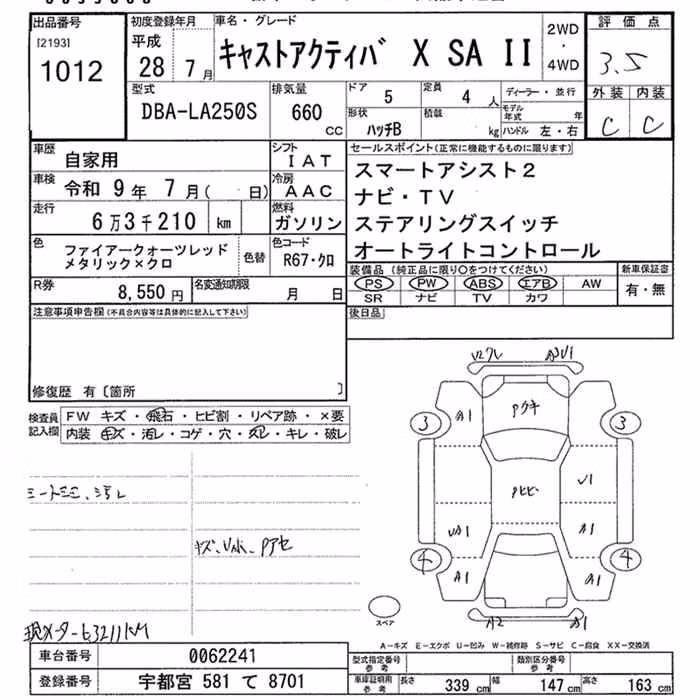 出品番号
[2193]
1012
初度登録年月
平成
28 年 7 月
車名・グレード
キャストアクティバ X SA II
2WD
・
4WD
評価点
3.5
外装 内装
C C
型式
DBA-LA250S
排気量
660
CC
ドア
5
定員
4 人
ディーラー・並行
形状
ハッチB
積載
kg
モデル年式 年
ハンドル 左・右
車歴
自家用
シフト
IAT
車検
令和 9 年 7 月 ( 日)
冷房
AAC
走行
6万3千210 km
燃料
ガソリン
色
ファイアークォーツレッド
メタリック×クロ
色替
色コード
R67・クロ
R券
8,550 円
名変通知期限
月 日
セールスポイント(正常に機能するものに限ります)
スマートアシスト2
ナビ・TV
ステアリングスイッチ
オートライトコントロール
装備品 (純正品に限り〇をつけてください)
PS PW ABS エアB AW
SR ナビ TV カワ
新車保証書
有・無
後日品
注意事項申告欄(不具合内容等は具体的に記入して下さい)
修復歴 有〔箇所 〕
検査員
記入欄
FW キズ・飛石・ヒビ割・リペア跡・×要
内装 キズ・汚レ・コゲ・穴・スレ・キレ・破レ
キズ、Uホ、Pアセ
現メーター63211KM
3
3
4
4
A1
Pクキ
Pヒビ
U1
UA1
A1
A1
A1
A2
B1
スペア
A-キズ E-エクボ U-凹み W-補修跡 S-サビ C-腐食 XX-交換済
車台番号
0062241
登録番号
宇都宮 581 て 8701
型式指定番号
参考
類別区分番号
参考
車庫証明用
参考
長さ 339 cm 幅 147 cm 高さ 163 cm